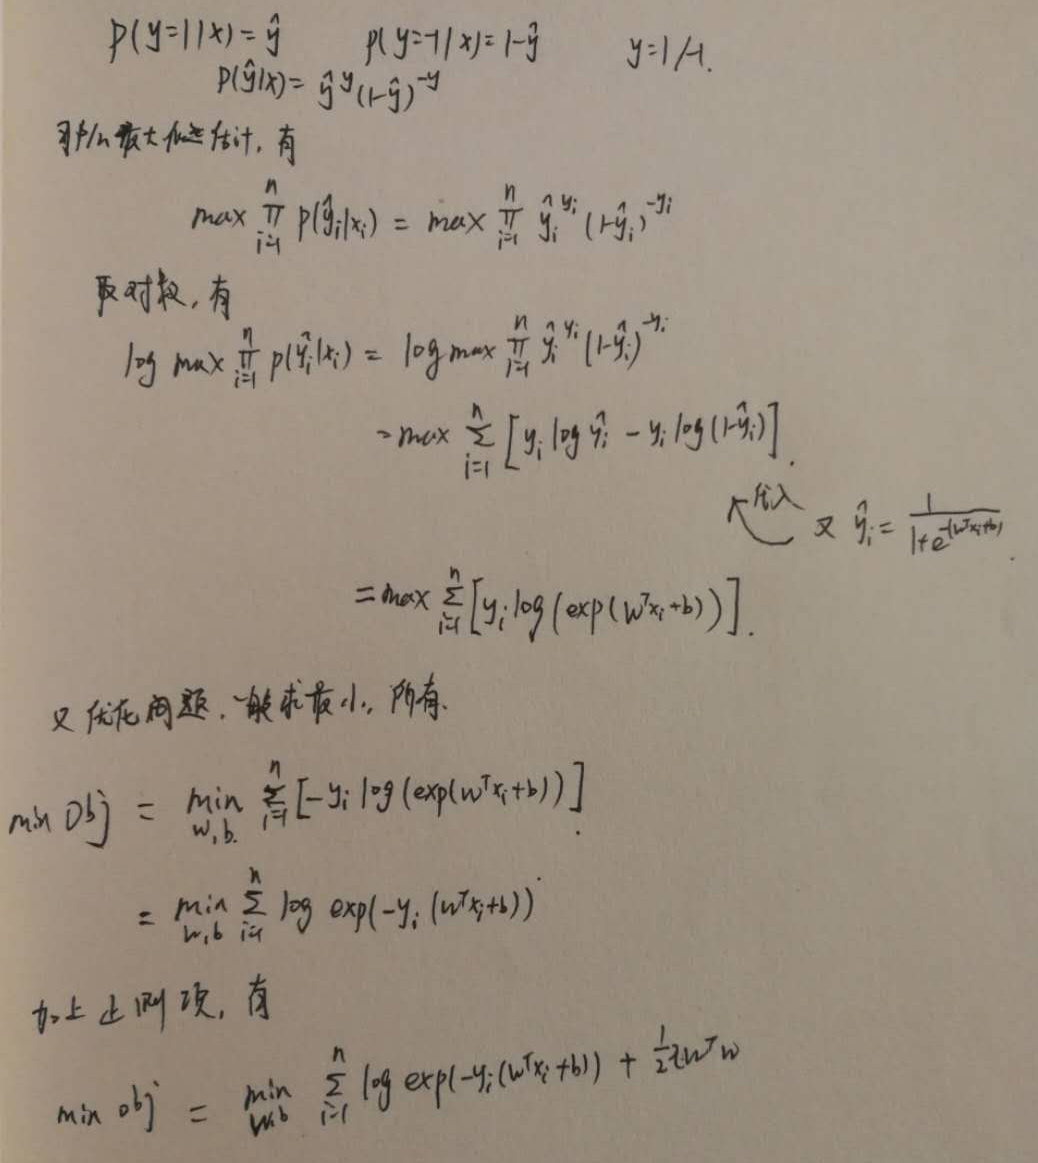 P(y=1|x)=ŷ P(y=-1|x)=1-ŷ y=1/-1.
P(ŷ|x)= ŷ^y (1-ŷ)^{-y}
最大似然估计, 有
max ∏_{i=1}^{n} P(ŷ_i|x_i) = max ∏_{i=1}^{n} ŷ_i^{y_i} (1-ŷ_i)^{-y_i}
取对数, 有
log max ∏_{i=1}^{n} P(ŷ_i|x_i) = log max ∏_{i=1}^{n} ŷ_i^{y_i} (1-ŷ_i)^{-y_i}
= max ∑_{i=1}^{n} [y_i log ŷ_i - y_i log(1-ŷ_i)].
代入 又 ŷ_i = 1/(1+e^{-(w^T x_i+b)}).
= max ∑_{i=1}^{n} [y_i log(exp(w^T x_i+b))].
又优化问题, 一般求最小, 所有.
min Obj = min_{w,b.} ∑_{i=1}^{n} [-y_i log(exp(w^T x_i+b))].
= min_{w,b} ∑_{i=1}^{n} log exp(-y_i (w^T x_i+b))
加上正则项, 有
min obj = min_{w,b} ∑_{i=1}^{n} log exp(-y_i(w^T x_i+b)) + 1/2 w^T w